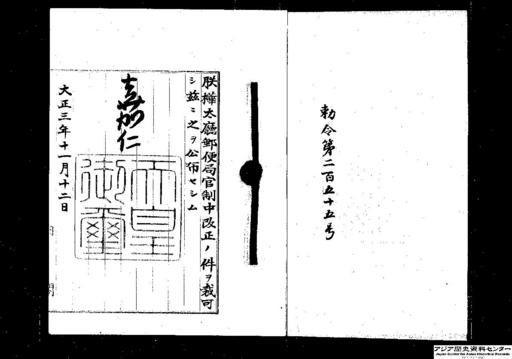 勅令第二百五十五号
朕樺太廳郵便局官制中改正ノ件ヲ裁可
シ茲ニ之ヲ公布セシム
嘉仁
天皇御璽
大正三年十一月十二日
アジア歴史資料センター
Japan Center for Asian Historical Records